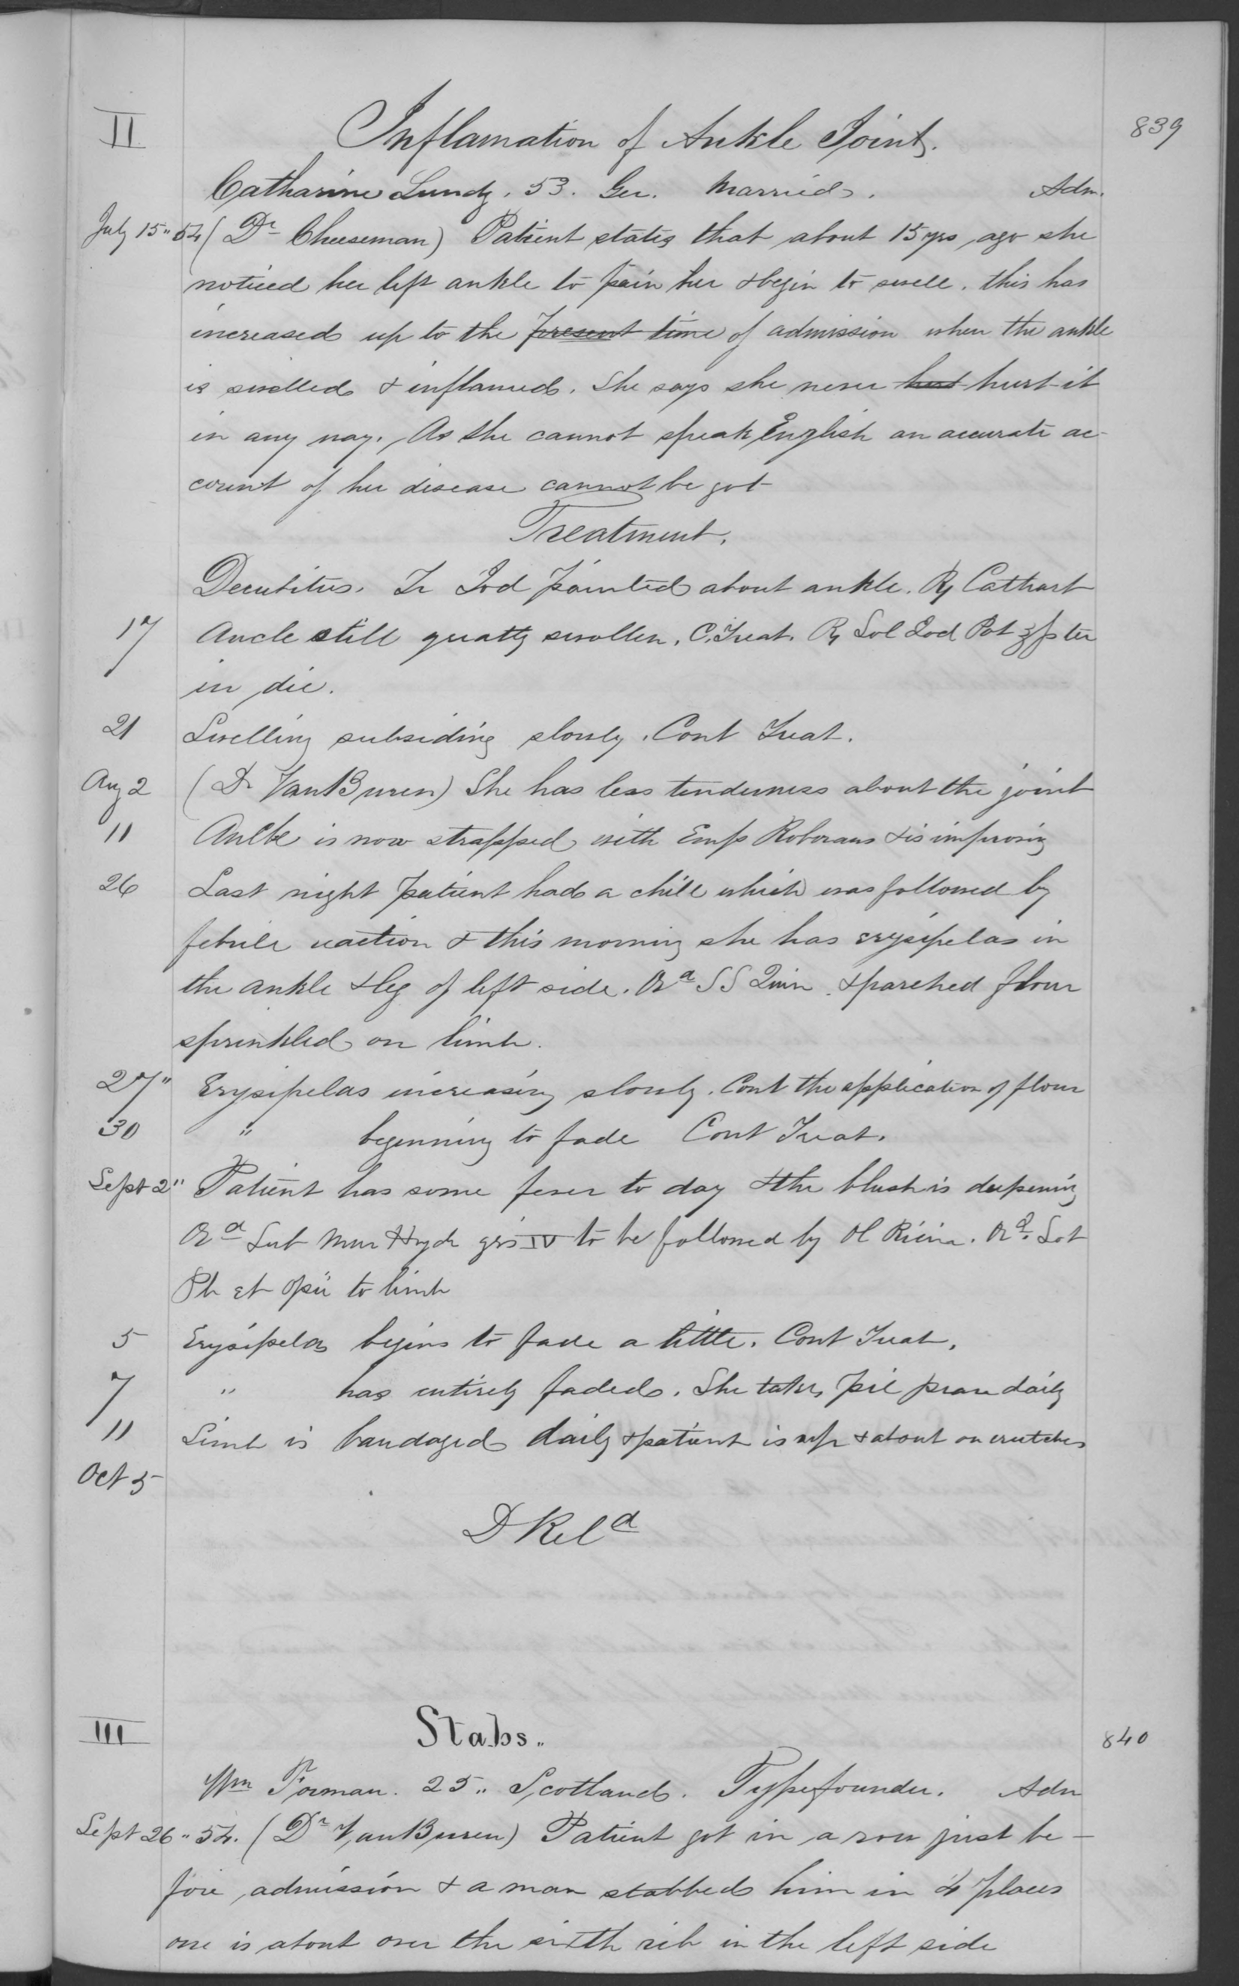 II
Inflamation of Ankle Joint.
839
Catharine Lundy. 53. Ger. Married. Adm.
July 15" 54 (Dr Cheeseman) Patient states that about 15 yrs ago she
noticed her left ankle to pain her & begin to swell. this has
increased up to the present time of admission when the ankle
is swelled & inflamed. She says she never hurt it
in any way. As she cannot speak English an accurate ac-
count of her disease cannot be got
Treatment.
Decubitus. Tr Iod painted about ankle. Rx Cathart
17 Ancle still greatly swollen. C. Treat. Rx Sol Iod Pot ʒfs ter
in die.
21 Swelling subsiding slowly. Cont Treat.
Aug 2 (Dr VanBuren) She has less tenderness about the joint
11 Ankle is now strapped with Emp Roborans & is improving
26 Last night patient had a chill which was followed by
febrile reaction & this morning she has erysipelas in
the ankle & leg of left side. Ord SS Quin. & parched flour
sprinkled on limb.
27" Erysipelas increasing slowly. Cont the application of flour
30 " beginning to fade Cont Treat.
Sept 2" Patient has some fever to day & the blush is deepening
Ord Sub Mur Hydr grs IV to be followed by Ol Ricini. Ord. Lot
Pb et opii to limb
5 Erysipelas begins to fade a little. Cont Treat.
7 " has entirely faded. She takes pil daily
11 Limb is bandaged daily & patient is up & about on crutches
Oct 5
D Reld
III
Stabs..
840
Wm Forman. 25.. Scotland. Typefounder. Adm
Sept 26" 54. (Dr VanBuren) Patient got in a row just be-
fore admission & a man stabbed him in 4 places
one is about over the sixth rib in the left side